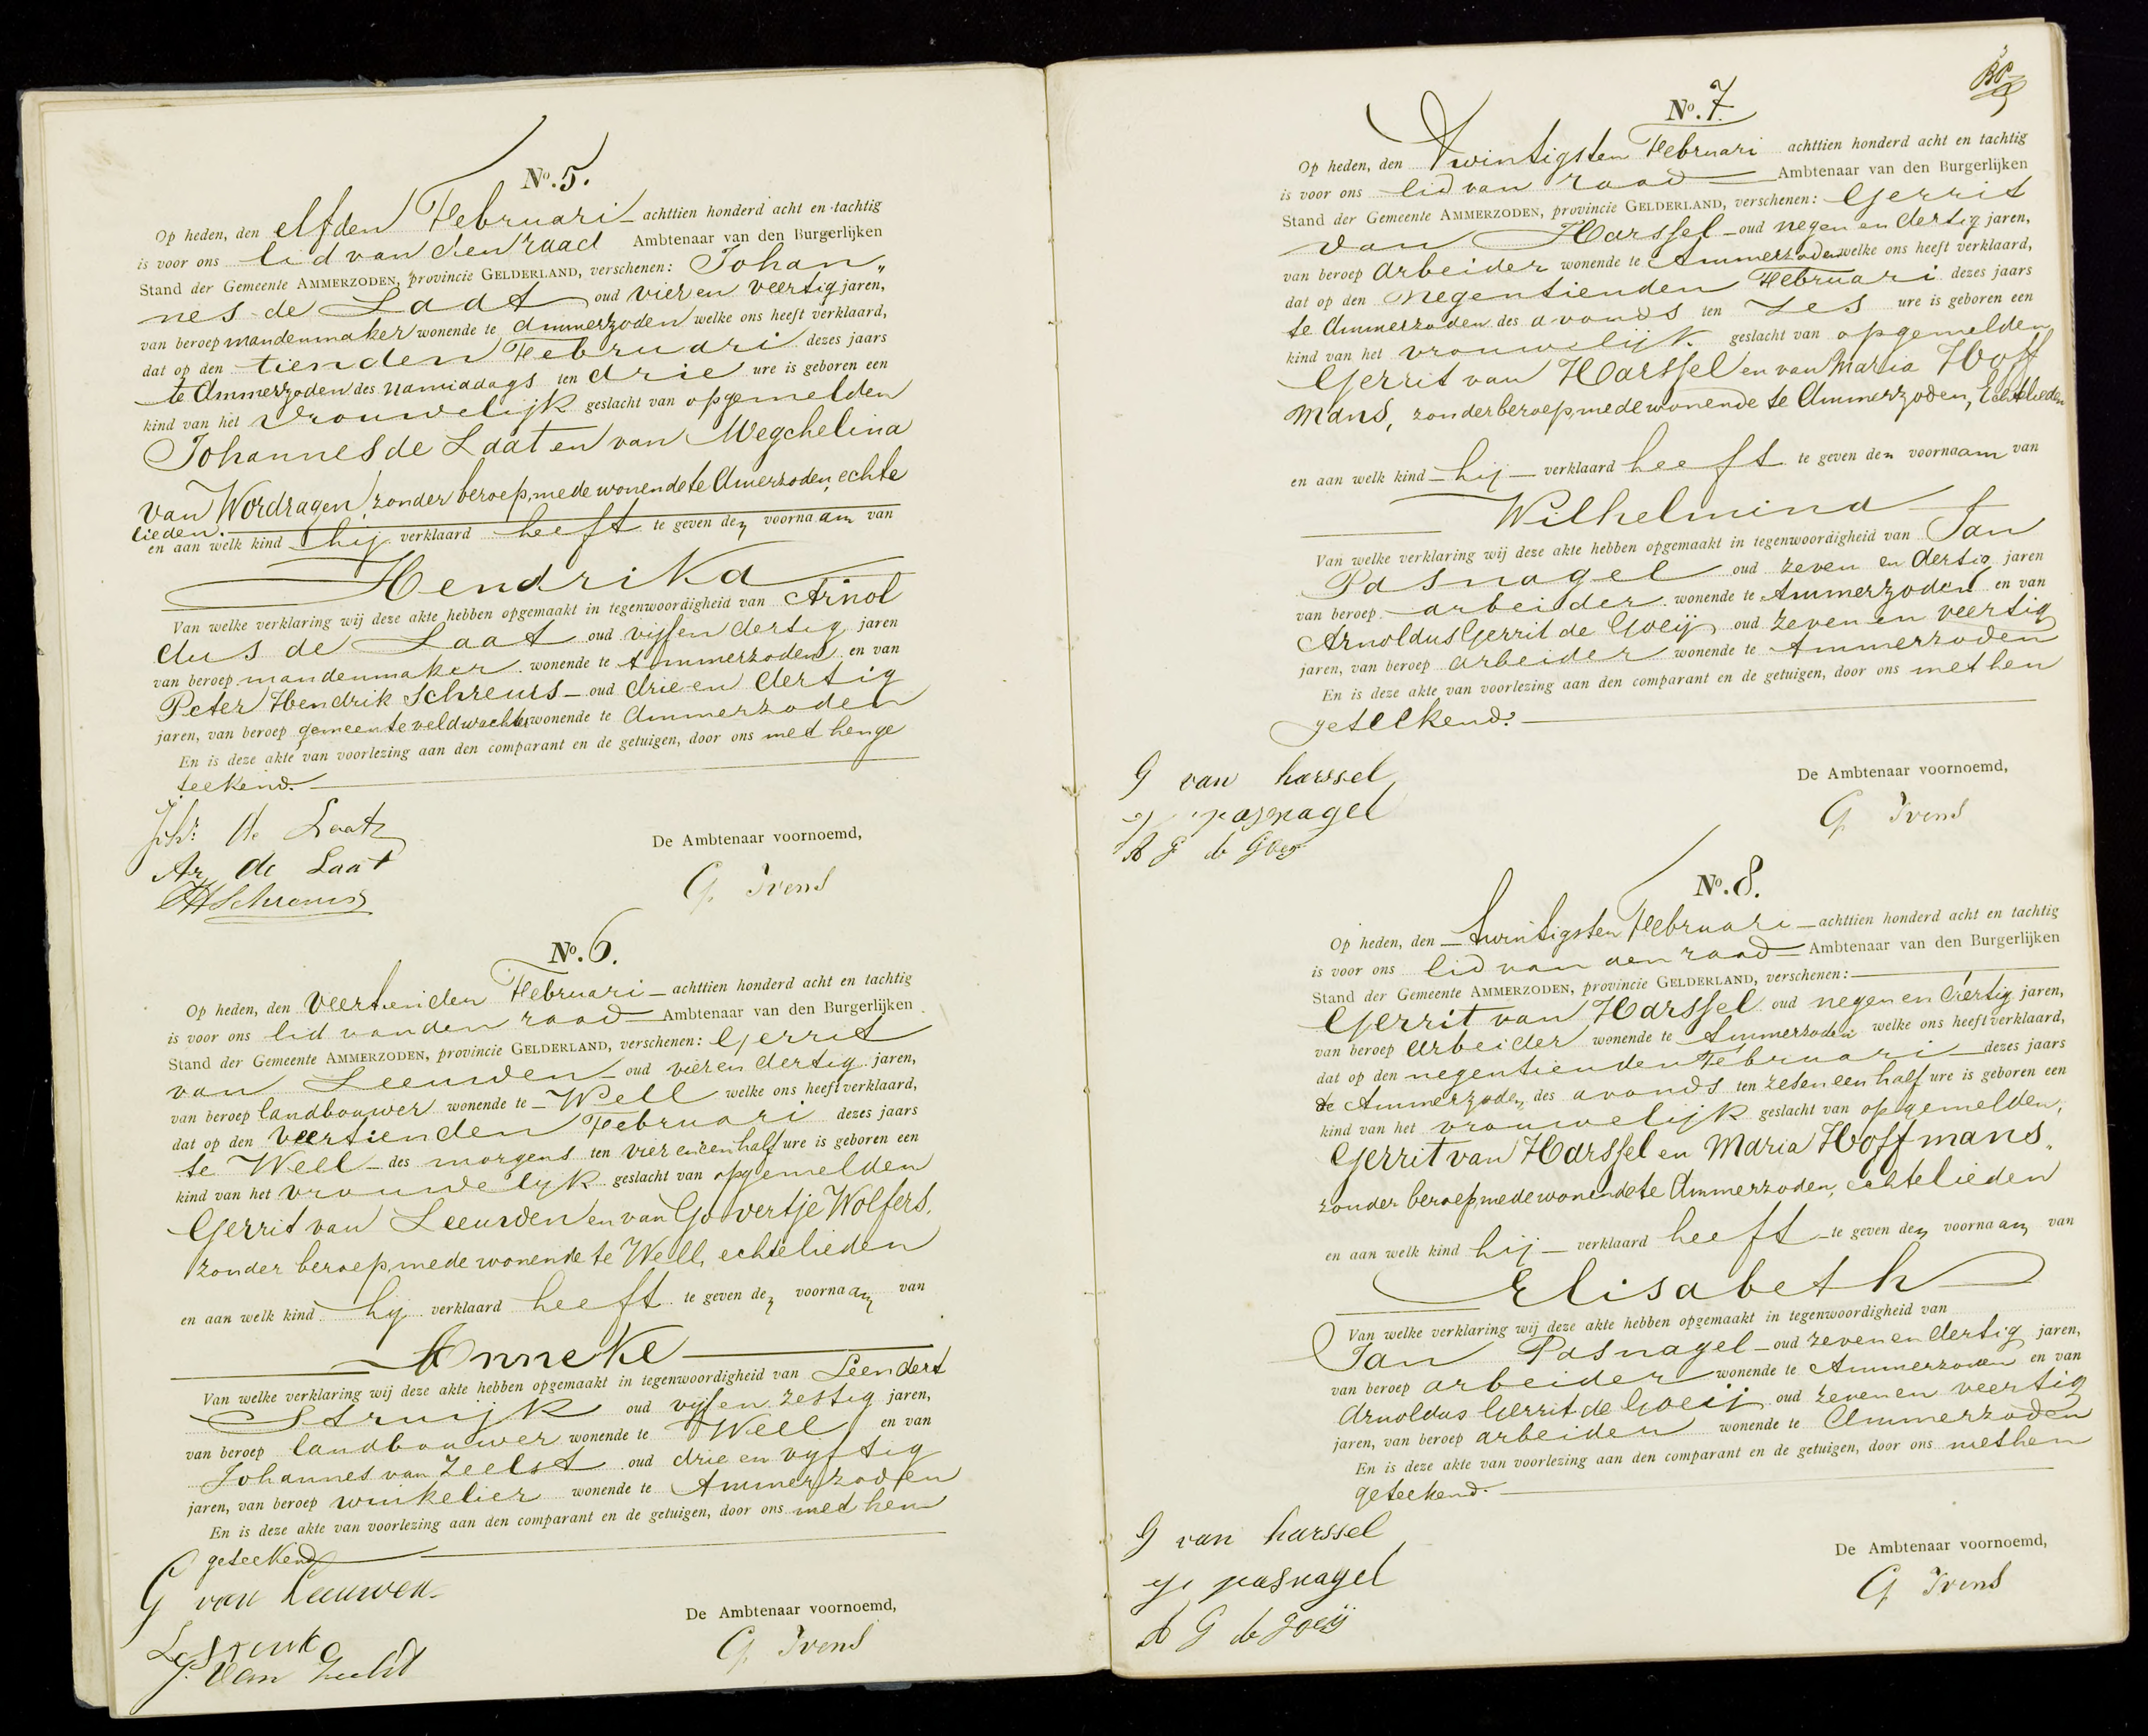 No. 5.
Op heden, den elfden Februari achttien honderd acht en tachtig
is voor ons lid van den raad Ambtenaar van den Burgerlijken
Stand der Gemeente AMMERZODEN, provincie GELDERLAND, verschenen: Johan„
nes de Laat oud vier en veertig jaren,
van beroep mandenmaker wonende te Ammerzoden welke ons heeft verklaard,
dat op den tienden Februari dezes jaars
te Ammerzoden des namiddags ten drie ure is geboren een
kind van het vrouwelijk geslacht van opgemelden
Johannes de Laat en van Megchelina
van Wordragen, zonder beroep, mede wonende te Amerzoden, echte
lieden.
en aan welk kind hij verklaard heeft te geven den voornaam van
Hendrika
Van welke verklaring wij deze akte hebben opgemaakt in tegenwoordigheid van Arnol
dus de Laat oud vijf en dertig jaren
van beroep mandenmaker wonende te Ammerzoden en van
Peter Hendrik Schreurs oud drie en dertig
jaren, van beroep gemeente veldwachter wonende te Ammerzoden
En is deze akte van voorlezing aan den comparant en de getuigen, door ons met hen ge
teekend.
Joh: de Laat
Ar de Laat
PHSchreurs
De Ambtenaar voornoemd,
G. Ivens
No. 6.
Op heden, den veertienden Februari achttien honderd acht en tachtig
is voor ons lid van den raad Ambtenaar van den Burgerlijken
Stand der Gemeente AMMERZODEN, provincie GELDERLAND, verschenen: Gerrit
van Leeuwen oud vier en dertig jaren,
van beroep landbouwer wonende te Well welke ons heeft verklaard,
dat op den veertienden Februari dezes jaars
te Well des morgens ten vier en een half ure is geboren een
kind van het vrouwelijk geslacht van opgemelden
Gerrit van Leeuwen en van Govertje Wolfers,
zonder beroep, mede wonende te Well, echtelieden
en aan welk kind hij verklaard heeft te geven den voornaam van
Anneke
Van welke verklaring wij deze akte hebben opgemaakt in tegenwoordigheid van Leendert
Struijk oud vijf en zestig jaren,
van beroep landbouwer wonende te Well en van
Johannes van Zeelst oud drie en vijftig
jaren, van beroep winkelier wonende te Ammerzoden
En is deze akte van voorlezing aan den comparant en de getuigen, door ons met hen
geteekend
G van Leeuwen
L Struik
J. van Zeelst
De Ambtenaar voornoemd,
G. Ivens
No. 7.
Op heden, den Twintigsten Februari achttien honderd acht en tachtig
is voor ons lid van raad Ambtenaar van den Burgerlijken
Stand der Gemeente AMMERZODEN, provincie GELDERLAND, verschenen: Gerrit
van Harssel oud negen en dertig jaren,
van beroep Arbeider wonende te Ammerzoden welke ons heeft verklaard,
dat op den negentienden Februari dezes jaars
te Ammerzoden des avonds ten zes ure is geboren een
kind van het vrouwelijk geslacht van opgemelden
Gerrit van Harssel en van Maria Hoff
mans, zonder beroep, mede wonende te Ammerzoden, Echtelieden
en aan welk kind hij verklaard heeft te geven den voornaam van
Wilhelmina
Van welke verklaring wij deze akte hebben opgemaakt in tegenwoordigheid van Jan
Pasnagel oud zeven en dertig jaren
van beroep arbeider wonende te Ammerzoden en van
Arnoldus Gerrit de Goeij oud zeven en veertig
jaren, van beroep arbeider wonende te Ammerzoden
En is deze akte van voorlezing aan den comparant en de getuigen, door ons met hen
geteekend.
G van harssel
J pasnagel
A G de Goeij
De Ambtenaar voornoemd,
G. Ivens
No. 8.
Op heden, den twintigsten Februari achttien honderd acht en tachtig
is voor ons lid van den raad Ambtenaar van den Burgerlijken
Stand der Gemeente AMMERZODEN, provincie GELDERLAND, verschenen:
Gerrit van Harssel oud negen en dertig jaren,
van beroep Arbeider wonende te Ammerzoden welke ons heeft verklaard,
dat op den negentienden Februari dezes jaars
te Ammerzoden, des avonds ten zes en een half ure is geboren een
kind van het vrouwelijk geslacht van opgemelden,
Gerrit van Harssel en Maria Hoffmans,
zonder beroep, mede wonende te Ammerzoden, echtelieden
en aan welk kind hij verklaard heeft te geven den voornaam van
Elisabeth
Van welke verklaring wij deze akte hebben opgemaakt in tegenwoordigheid van
Jan Pasnagel oud zeven en dertig jaren,
van beroep arbeider wonende te Ammerzoden en van
Arnoldus Gerrit de Goeij oud zeven en veertig
jaren, van beroep arbeider wonende te Ammerzoden
En is deze akte van voorlezing aan den comparant en de getuigen, door ons met hen
geteekend.
G van harssel
J pasnagel
A G de goeij
De Ambtenaar voornoemd,
G. Ivens